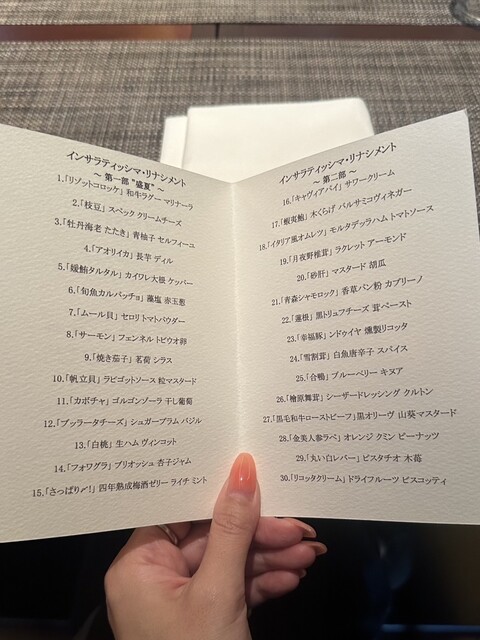 インサラティッシマ・リナシメント
～ 第一部 "盛夏" ～
1.「リゾットコロッケ」和牛ラグー マリナーラ
2.「枝豆」スペック クリームチーズ
3.「牡丹海老 たたき」青柚子 セルフィーユ
4.「アオリイカ」長芋 ディル
5.「媛鮪タルタル」カイワレ大根 ケッパー
6.「旬魚カルパッチョ」藻塩 赤玉葱
7.「ムール貝」セロリ トマトパウダー
8.「サーモン」フェンネル トビウオ卵
9.「焼き茄子」茗荷 シラス
10.「帆立貝」ラビゴットソース 粒マスタード
11.「カボチャ」ゴルゴンゾーラ 干し葡萄
12.「ブッラータチーズ」シュガープラム バジル
13.「白桃」生ハム ヴィンコット
14.「フォワグラ」ブリオッシュ 杏子ジャム
15.「さっぱり〆!」四年熟成梅酒ゼリー ライチ ミント
インサラティッシマ・リナシメント
～ 第二部 ～
16.「キャヴィアパイ」サワークリーム
17.「蝦夷鮑」木くらげ バルサミコヴィネガー
18.「イタリア風オムレツ」モルタデッラハム トマトソース
19.「月夜野椎茸」ラクレット アーモンド
20.「砂肝」マスタード 胡瓜
21.「青森シャモロック」香草パン粉 カプリーノ
22.「蓮根」黒トリュフチーズ 茸ペースト
23.「幸福豚」ンドゥイヤ 燻製リコッタ
24.「雪割茸」白魚唐辛子 スパイス
25.「合鴨」ブルーベリー キヌア
26.「檜原舞茸」シーザードレッシング クルトン
27.「黒毛和牛ローストビーフ」黒オリーヴ 山葵マスタード
28.「金美人参ラペ」オレンジ クミン ピーナッツ
29.「丸い白レバー」ピスタチオ 木苺
30.「リコッタクリーム」ドライフルーツ ビスコッティ